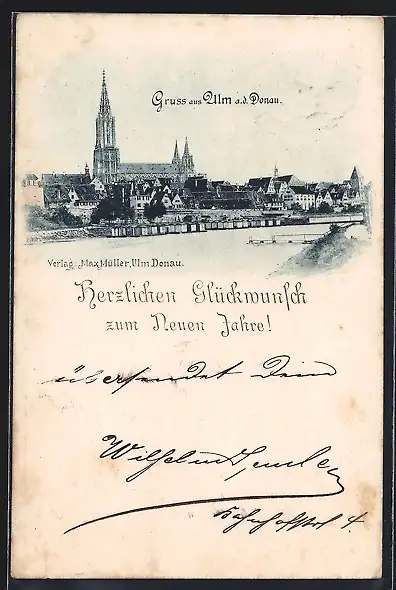 Gruss aus Ulm a.d. Donau.
Verlag: Max Müller, Ulm Donau.
Herzlichen Glückwunsch
zum Neuen Jahre!
übersendet Dein
Wilhelm
Bahnhofstr. 4.